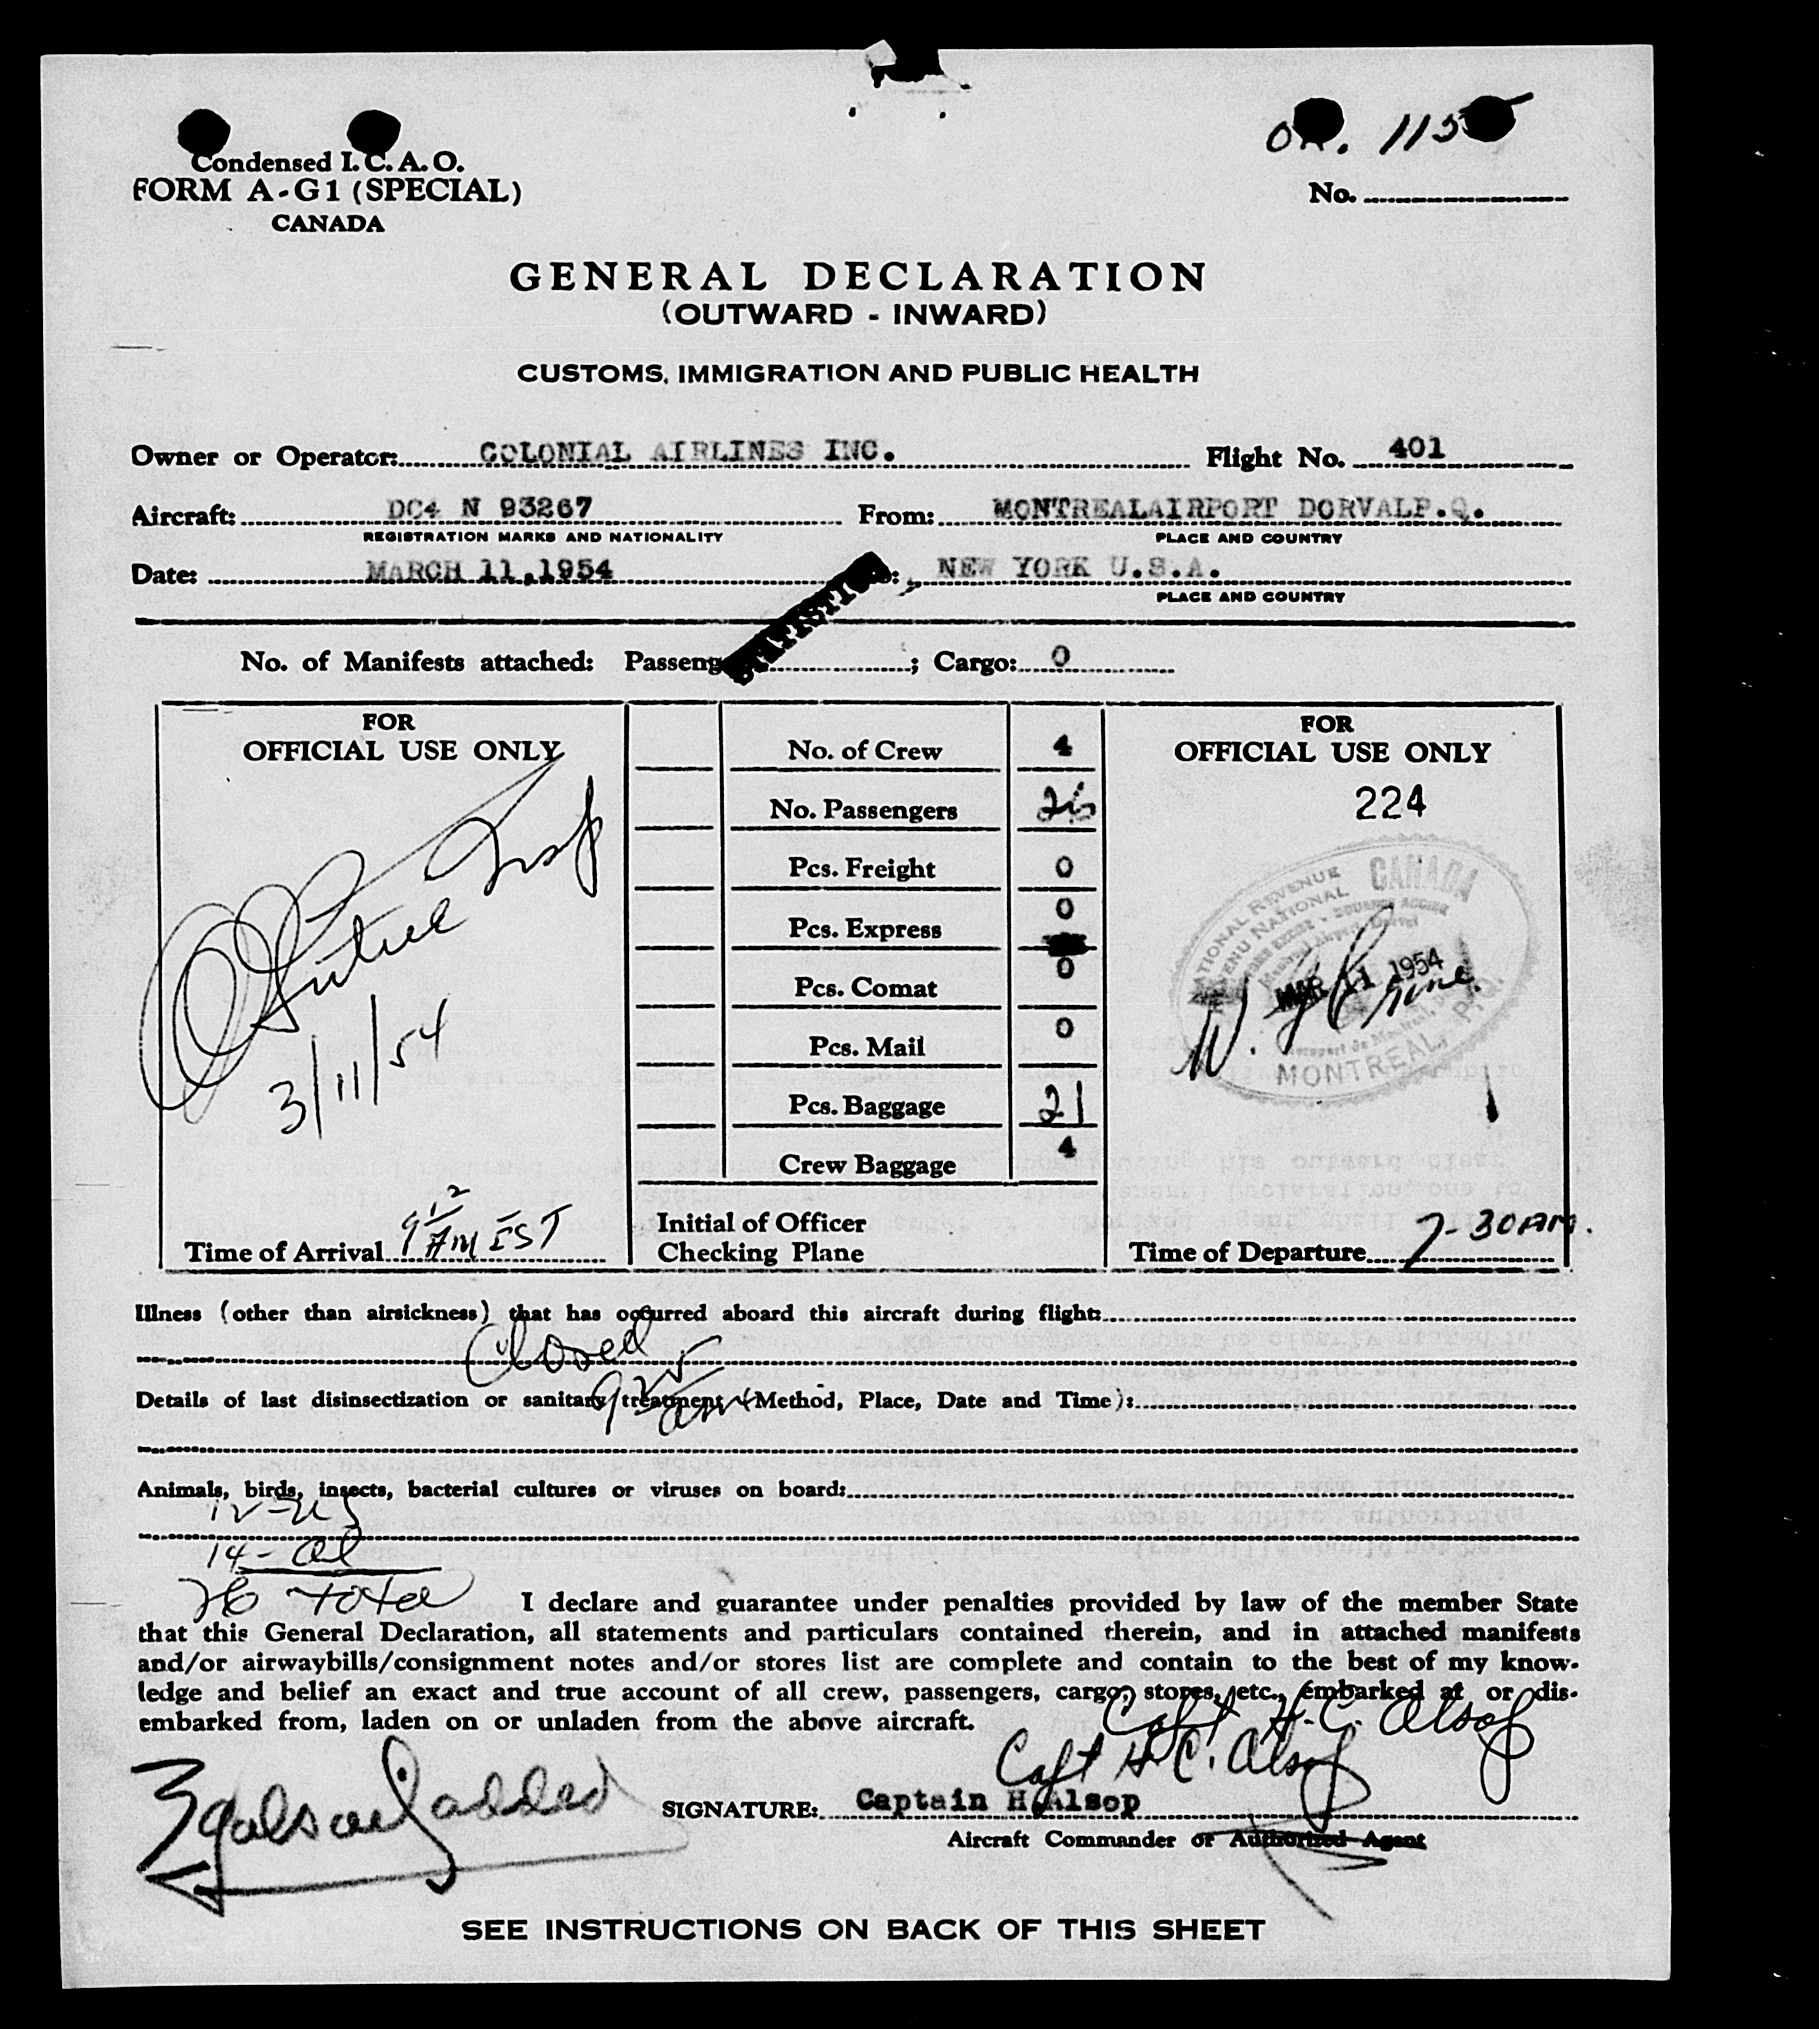 Condensed I. C. A. O.
FORM A-G1 (SPECIAL)
CANADA
No.
GENERAL DECLARATION
(OUTWARD - INWARD)
CUSTOMS, IMMIGRATION AND PUBLIC HEALTH
Owner or Operator: COLONIAL AIRLINES INC. Flight No. 401
Aircraft: DC4 N 93267 From: MONTREALAIRPORT DORVALP.Q.
REGISTRATION MARKS AND NATIONALITY PLACE AND COUNTRY
Date: MARCH 11,1954 NEW YORK U.S.A.
PLACE AND COUNTRY
No. of Manifests attached: Passeng ; Cargo: 0
FOR
OFFICIAL USE ONLY
3/11/54
Time of Arrival 9 12 AM EST
No. of Crew 4
No. Passengers 26
Pcs. Freight 0
Pcs. Express 0
Pcs. Comat 0
Pcs. Mail 0
Pcs. Baggage 21
Crew Baggage 4
Initial of Officer
Checking Plane
FOR
OFFICIAL USE ONLY
224
NATIONAL REVENUE CANADA
REVENU NATIONAL
MAR 11 1954
MONTREAL, P.Q.
Time of Departure 7-30 AM.
Illness (other than airsickness) that has occurred aboard this aircraft during flight:
Closed
Details of last disinsectization or sanitary treatment (Method, Place, Date and Time):
Animals, birds, insects, bacterial cultures or viruses on board:
12-US
14-al
26 Total
I declare and guarantee under penalties provided by law of the member State
that this General Declaration, all statements and particulars contained therein, and in attached manifests
and/or airwaybills/consignment notes and/or stores list are complete and contain to the best of my know-
ledge and belief an exact and true account of all crew, passengers, cargo, stores, etc., embarked at or dis-
embarked from, laden on or unladen from the above aircraft.
Capt H. C. Alsop
Capt H. C. Alsop
SIGNATURE: Captain H Alsop
Aircraft Commander or Authorized Agent
3 gals oil added
SEE INSTRUCTIONS ON BACK OF THIS SHEET